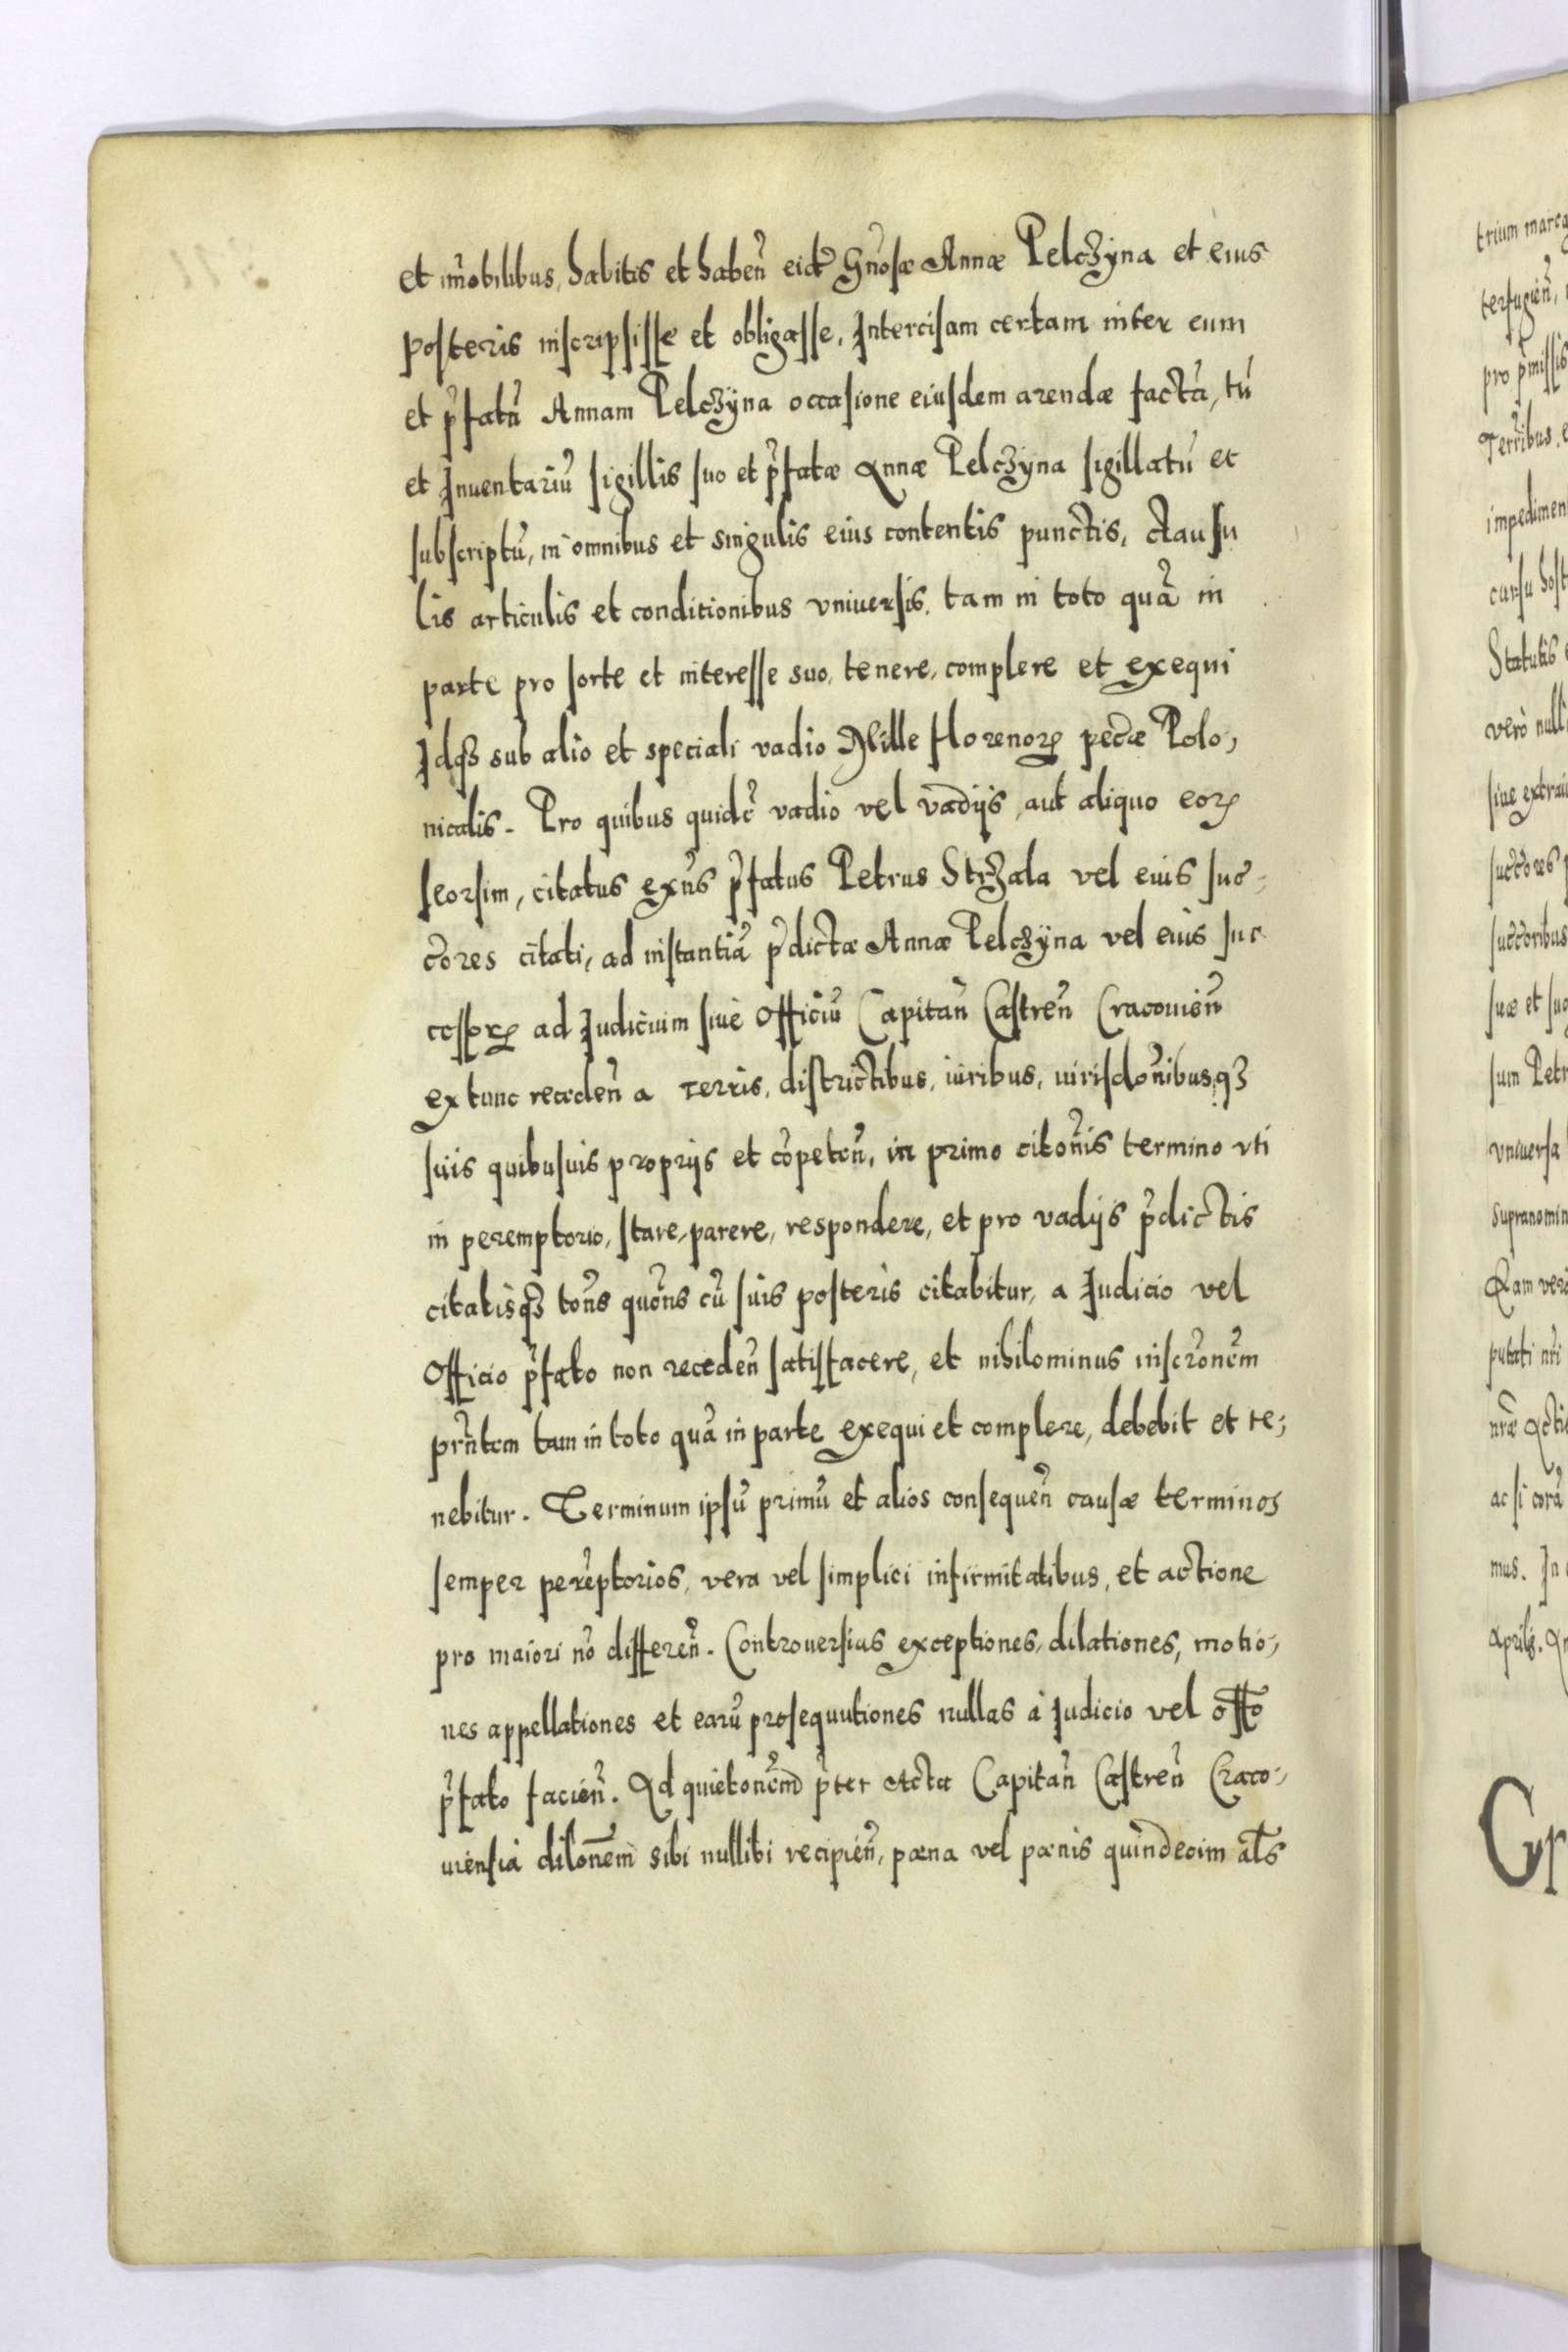 et im̃obilibus, habitis et haben̄ eid̃ G̃nosæ Annæ Pelczÿna et eius
posteris inscripsisse et obligasse, Intercisam certam inter eum
et p̃fatã Annam Pelczÿna occasione eiusdem arendæ factã, tũ
et Inuentariũ sigillis suo et p̃fatæ Annæ Pelczÿna sigillatũ et
subscriptũ, in omnibus et singulis eius contentis punctis, clausu
lis articulis et conditionibus vniuersis, tam in toto quã in
parte pro sorte et interesse suo, tenere, complere et exequi
Idqȝ sub alio et speciali vadio Mille florenoꝝ pec̃æ Polo,
nicalis. Pro quibus quid̃ vadio vel vadijs, aut aliquo eoꝝ
seorsim, citatus ex̃ns p̃fatus Petrus Strzala vel eius suc̃-
c̃ores citati, ad instantiã p̃dictæ Annæ Pelczÿna vel eius suc
cessoꝝ ad Iudicium siue Officiũ Capitan̄ Castren̄ Cracouien̄
ex tunc receden̄ a Terris, districtibus, iuribus, iurisdõnibusqȝ
suis quibusuis proprijs et cõpeten̄, in primo citõnis termino vti
in peremptorio, stare, parere, respondere, et pro vadijs p̃dictis
citatisqȝ tõns quõns cũ suis posteris citabitur, a Iudicio vel
Officio p̃fato non receden̄ satisfacere, et nihilominus inscrõnem
prñtem tam in toto quã in parte exequi et complere, debebit et te,
nebitur. Terminum ipsũ primũ et alios consequen̄ causæ terminos
semper perẽptorios, vera vel simplici infirmitatibus, et actione
pro maiori nõ differen̄. Controuersias exceptiones, dilationes, motio,
nes appellationes et earũ prosequutiones nullas à Iudicio vel offõ
p̃fato facien̄. Ad quietõnemqȝ p̃ter Acta Capitan̄ Castren̄ Craco,
uiensia dilõnem sibi nullibi recipien̄, pæna vel pænis quindecim al̃s
trium marca
terfugien̄,
pro p̃missis
Terribus, e
impedimen
cursu host
Statutis
verò nulli
siue extrau
succ̃ores p
succ̃oribus
suæ et suc
sum Petr
vniuersa
supranomin
Quam vero
putati nr̃i
nr̃æ Actis
ac si corã
mus. In
Aprilis. An
Gr